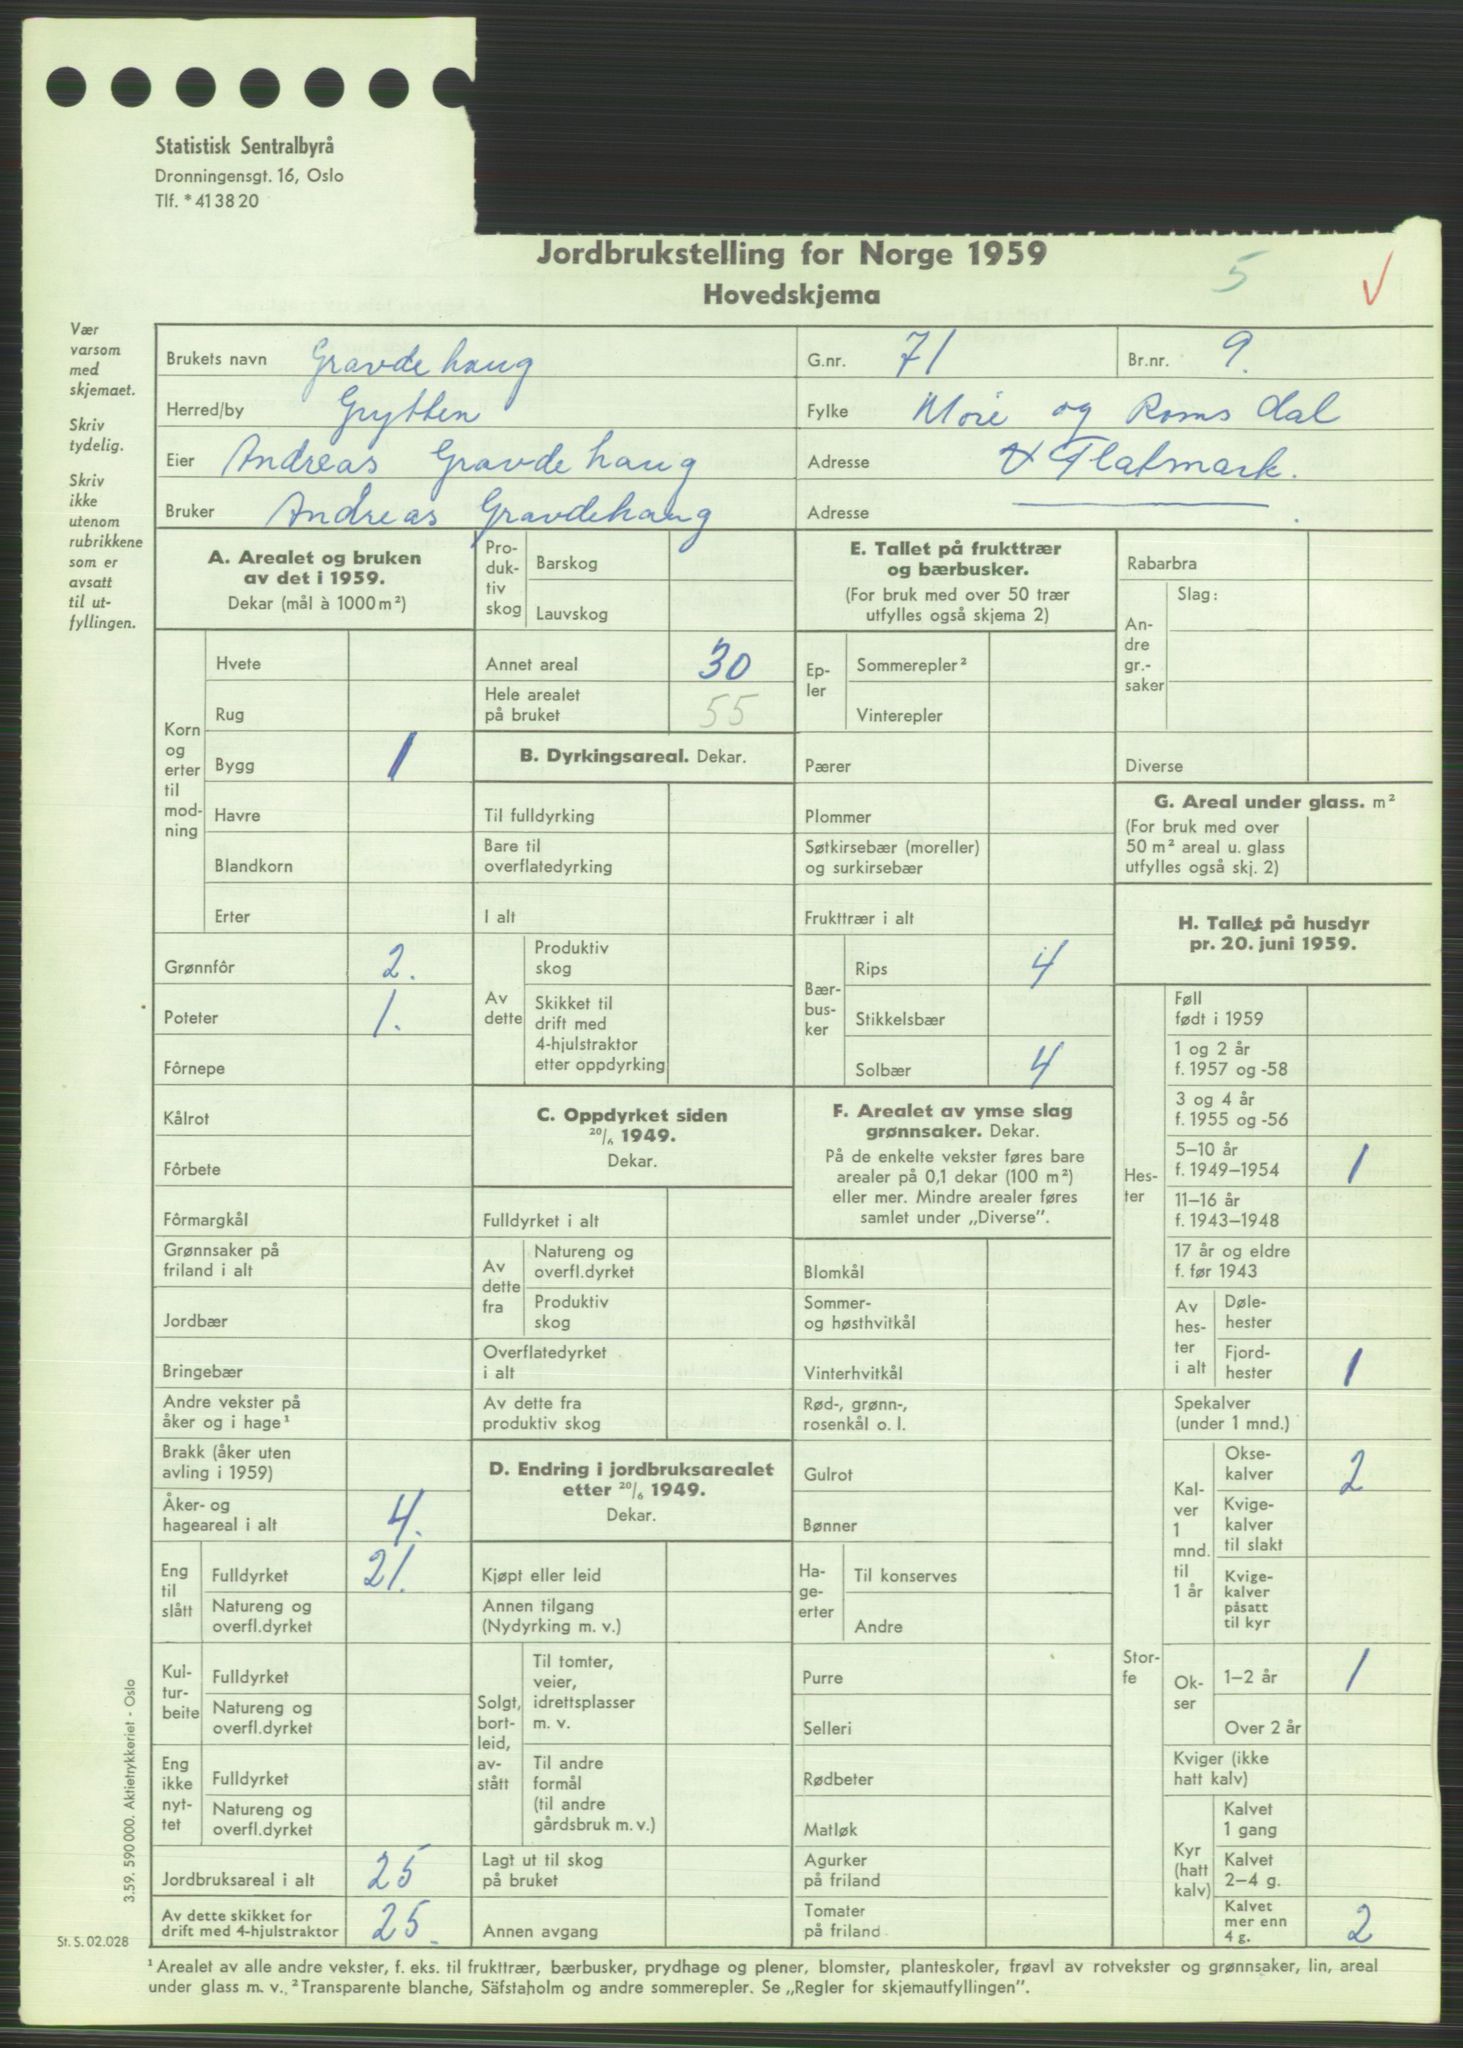 Statistisk Sentralbyrå
Dronningensgt. 16, Oslo
Tlf. *41 38 20
Jordbrukstelling for Norge 1959
Hovedskjema
5
Vær
varsom
med
skjemaet.
Skriv
tydelig.
Skriv
ikke
utenom
rubrikkene
som er
avsatt
til ut-
fyllingen.
Brukets navn Gravdehaug G.nr. 71 Br.nr. 9.
Herred/by Grytten Fylke Møre og Romsdal
Eier Andreas Gravdehaug Adresse Flatmark.
Bruker Andreas Gravdehaug Adresse
A. Arealet og bruken
av det i 1959.
Dekar (mål à 1000 m²)
Korn
og
erter
til
mod-
ning
Hvete
Rug
Bygg 1
Havre
Blandkorn
Erter
Grønnfôr 2.
Poteter 1.
Fôrnepe
Kålrot
Fôrbete
Fôrmargkål
Grønnsaker på
friland i alt
Jordbær
Bringebær
Andre vekster på
åker og i hage¹
Brakk (åker uten
avling i 1959)
Åker- og
hageareal i alt 4.
Eng
til
slått
Fulldyrket 21.
Natureng og
overfl.dyrket
Kul-
tur-
beite
Fulldyrket
Natureng og
overfl.dyrket
Eng
ikke
nyt-
tet
Fulldyrket
Natureng og
overfl.dyrket
Jordbruksareal i alt 25
Av dette skikket for
drift med 4-hjulstraktor 25.
Pro-
duk-
tiv
skog
Barskog
Lauvskog
Annet areal 30
Hele arealet
på bruket 55
B. Dyrkingsareal. Dekar.
Til fulldyrking
Bare til
overflatedyrking
I alt
Av
dette
Produktiv
skog
Skikket til
drift med
4-hjulstraktor
etter oppdyrking
C. Oppdyrket siden
20/6 1949.
Dekar.
Fulldyrket i alt
Av
dette
fra
Natureng og
overfl.dyrket
Produktiv
skog
Overflatedyrket
i alt
Av dette fra
produktiv skog
D. Endring i jordbruksarealet
etter 20/6 1949.
Dekar.
Kjøpt eller leid
Annen tilgang
(Nydyrking m. v.)
Solgt,
bort-
leid,
av-
stått
Til tomter,
veier,
idrettsplasser
m. v.
Til andre
formål
(til andre
gårdsbruk m. v.)
Lagt ut til skog
på bruket
Annen avgang
E. Tallet på frukttrær
og bærbusker.
(For bruk med over 50 trær
utfylles også skjema 2)
Ep-
ler
Sommerepler²
Vinterepler
Pærer
Plommer
Søtkirsebær (moreller)
og surkirsebær
Frukttrær i alt
Bær-
bus-
ker
Rips 4
Stikkelsbær
Solbær 4
F. Arealet av ymse slag
grønnsaker. Dekar.
På de enkelte vekster føres bare
arealer på 0,1 dekar (100 m²)
eller mer. Mindre arealer føres
samlet under „Diverse”.
Blomkål
Sommer-
og høsthvitkål
Vinterhvitkål
Rød-, grønn-,
rosenkål o. l.
Gulrot
Bønner
Ha-
ge-
erter
Til konserves
Andre
Purre
Selleri
Rødbeter
Matløk
Agurker
på friland
Tomater
på friland
Rabarbra
An-
dre
gr.-
saker
Slag:
Diverse
G. Areal under glass. m²
(For bruk med over
50 m² areal u. glass
utfylles også skj. 2)
H. Tallet på husdyr
pr. 20. juni 1959.
Hes-
ter
Føll
født i 1959
1 og 2 år
f. 1957 og -58
3 og 4 år
f. 1955 og -56
5–10 år
f. 1949–1954 1
11–16 år
f. 1943–1948
17 år og eldre
f. før 1943
Av
hes-
ter
i alt
Døle-
hester
Fjord-
hester 1
Stor-
fe
Spekalver
(under 1 mnd.)
Kal-
ver
1
mnd.
til
1 år
Okse-
kalver 2
Kvige-
kalver
til slakt
Kvige-
kalver
påsatt
til kyr
Ok-
ser
1–2 år 1
Over 2 år
Kviger (ikke
hatt kalv)
Kyr
(hatt
kalv)
Kalvet
1 gang
Kalvet
2–4 g.
Kalvet
mer enn
4 g. 2
3.59. 590 000. Aktietrykkeriet - Oslo
St. S. 02.028
¹ Arealet av alle andre vekster, f. eks. til frukttrær, bærbusker, prydhage og plener, blomster, planteskoler, frøavl av rotvekster og grønnsaker, lin, areal
under glass m. v. ² Transparente blanche, Säfstaholm og andre sommerepler. Se „Regler for skjemautfyllingen”.